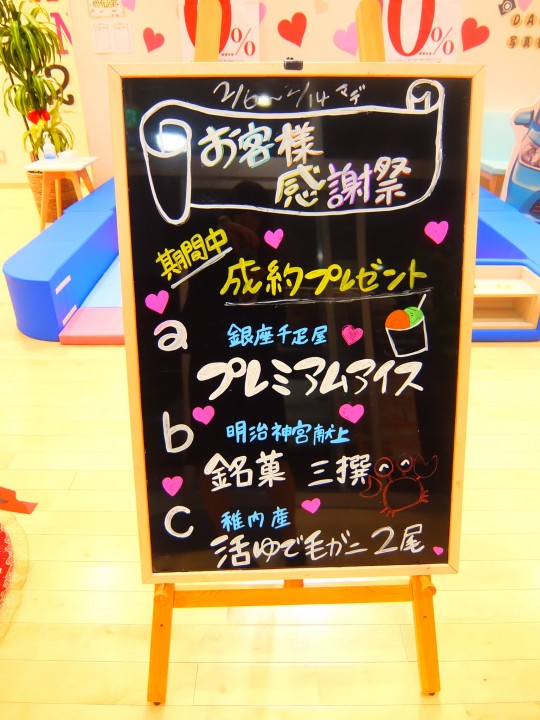 0%
0%
DA
写真
2/6〜2/14マデ
お客様
感謝祭
期間中
成約プレゼント
a 銀座千疋屋
プレミアムアイス
b 明治神宮献上
銘菓 三撰
c 稚内産
活ゆで毛がニ2尾